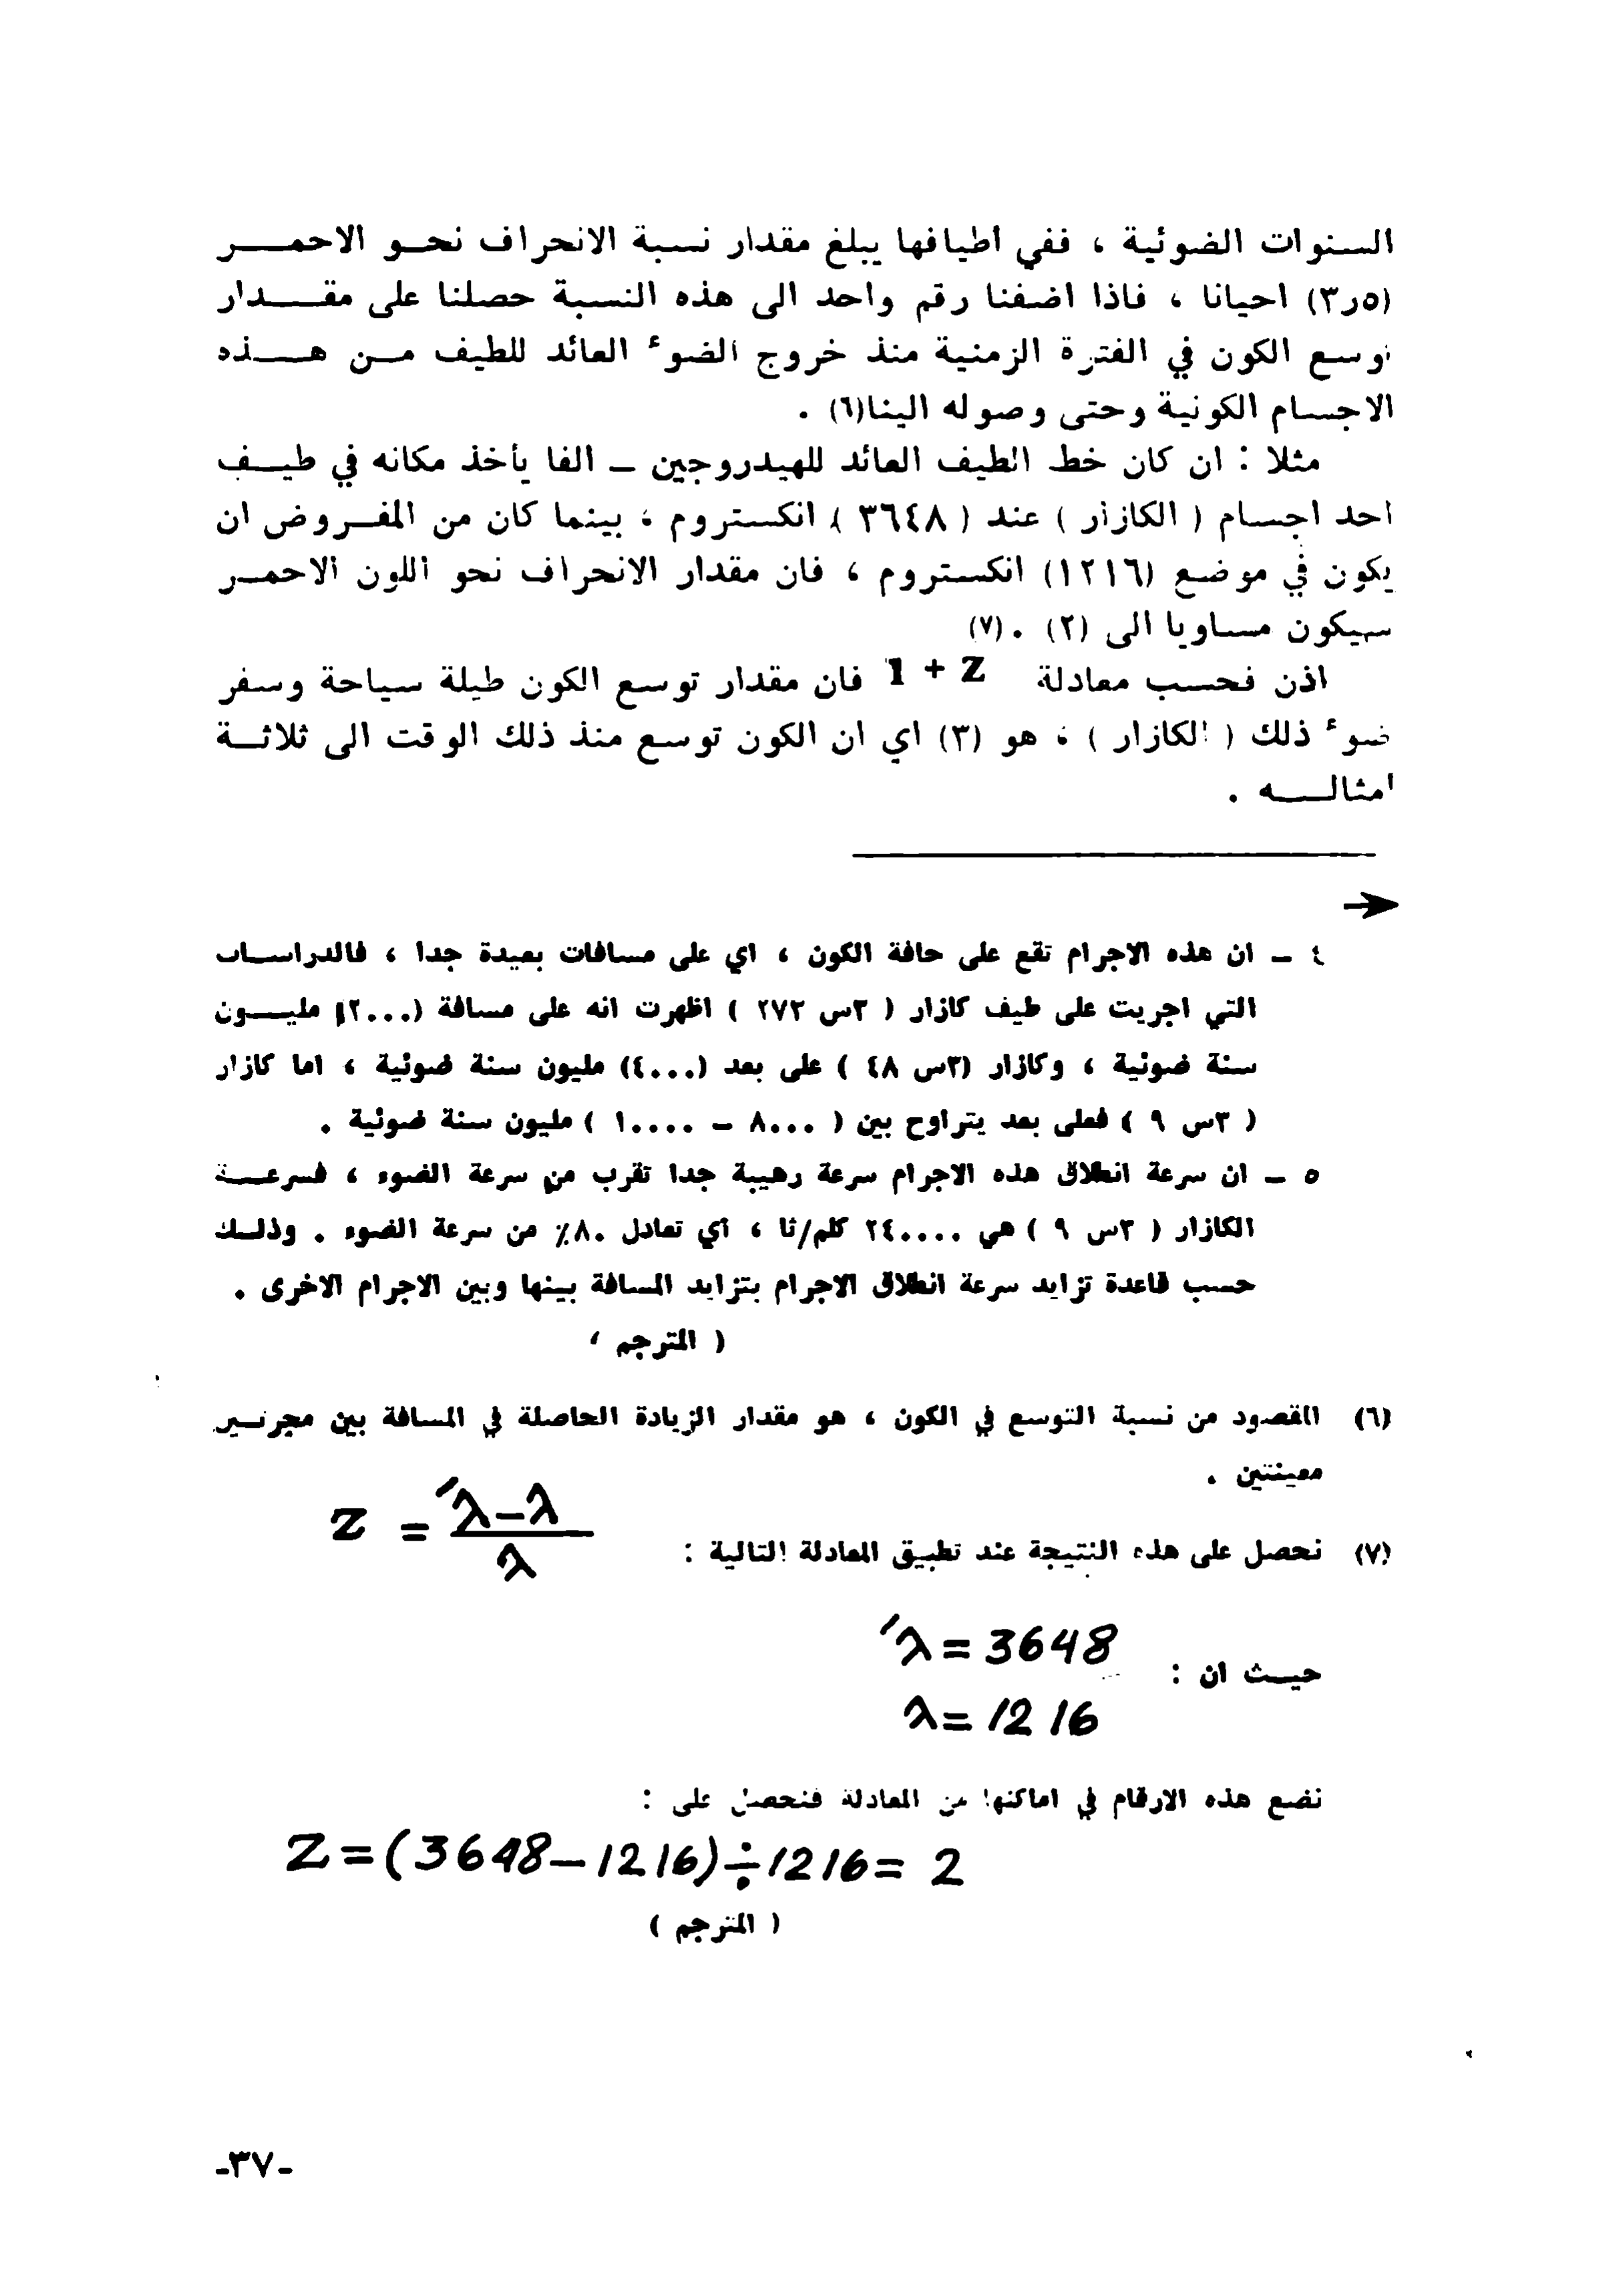 السنوات الضوئية ، ففي اطيافها يبلغ مقدار نسبة الانحراف نحو الاحمر
(٥ر٣) احيانا ، فاذا اضفنا رقم واحد الى هذه النسبة حصلنا على مقدار
توسع الكون في الفترة الزمنية منذ خروج الضوء العائد للطيف من هذه
الاجسام الكونية وحتى وصوله الينا(٦) .
مثلا : ان كان خط الطيف العائد للهيدروجين – الفا يأخذ مكانه في طيف
احد اجسام ( الكازار ) عند ( ٣٦٤٨ ) انكستروم ، بينما كان من المفروض ان
يكون في موضع (١٢١٦) انكستروم ، فان مقدار الانحراف نحو اللون الاحمر
سيكون مساويا الى (٢) .(٧)
اذن فحسب معادلة 1 + Z فان مقدار توسع الكون طيلة سياحة وسفر
ضوء ذلك ( الكازار ) ، هو (٣) اي ان الكون توسع منذ ذلك الوقت الى ثلاثة
امثاله .
→
٤ – ان هذه الاجرام تقع على حافة الكون ، اي على مسافات بعيدة جدا ، فالدراسات
التي اجريت على طيف كازار ( ٣س ٢٧٣ ) اظهرت انه على مسافة (٢٠٠٠) مليون
سنة ضوئية ، وكازار (٣س ٤٨ ) على بعد (٤٠٠٠) مليون سنة ضوئية ، اما كازار
( ٣س ٩ ) فعلى بعد يتراوح بين ( ٨٠٠٠ – ١٠٠٠٠ ) مليون سنة ضوئية .
٥ – ان سرعة انطلاق هذه الاجرام سرعة رهيبة جدا تقرب من سرعة الضوء ، فسرعة
الكازار ( ٣س ٩ ) هي ٢٤٠٠٠٠ كلم/ثا ، أي تعادل ٨٠٪ من سرعة الضوء . وذلك
حسب قاعدة تزايد سرعة انطلاق الاجرام بتزايد المسافة بينها وبين الاجرام الاخرى .
( المترجم )
(٦) المقصود من نسبة التوسع في الكون ، هو مقدار الزيادة الحاصلة في المسافة بين مجرتين
معينتين .
(٧) نحصل على هذه النتيجة عند تطبيق المعادلة التالية : Z = ′λ−λ / λ
حيث ان : ′λ = 3648
λ = 1216
نضع هذه الارقام في اماكنها من المعادلة فنحصل على :
Z = (3648 – 1216) ÷ 1216 = 2
( المترجم )
-٣٧-